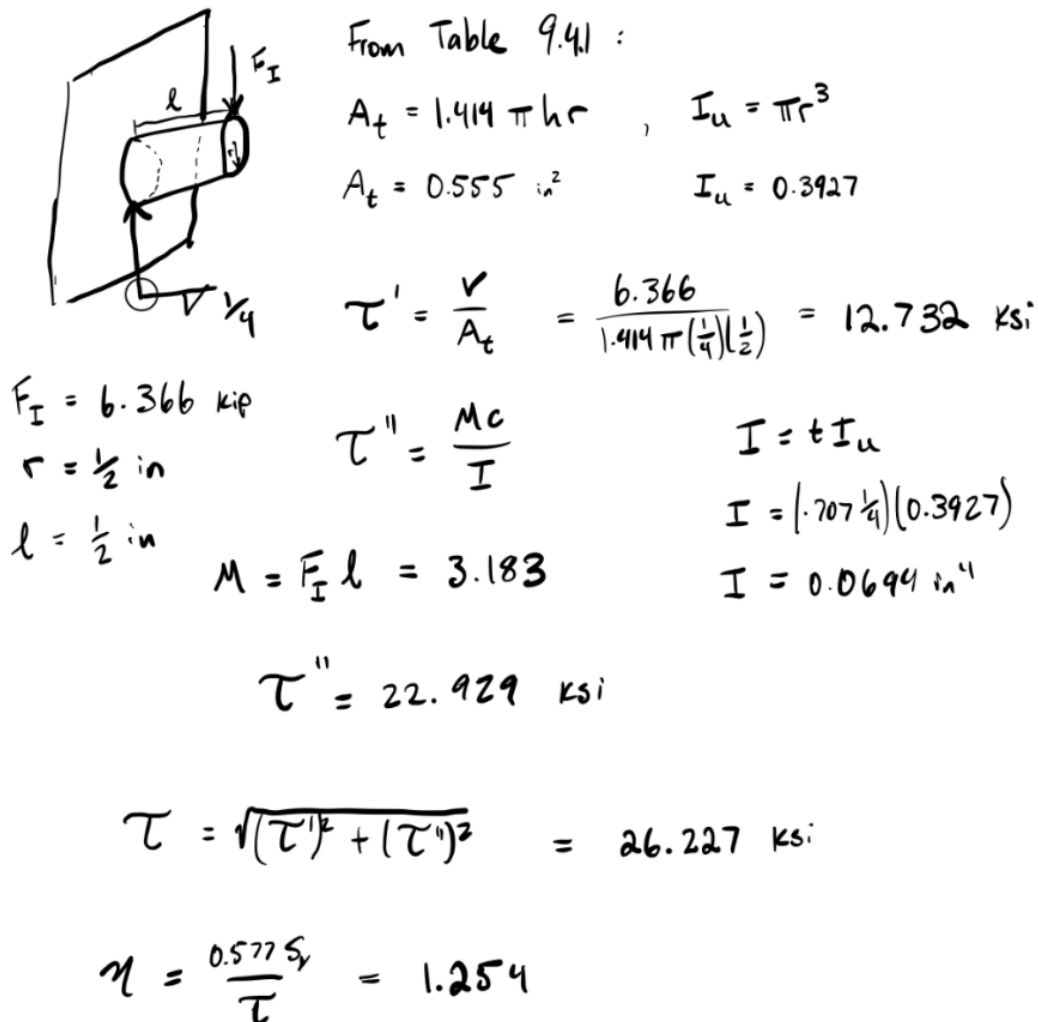 From Table 9.4.1 :
F_I
l
r
1/4
A_t = 1.414 π h r , I_u = πr³
A_t = 0.555 in² I_u = 0.3927
τ' = V/A_t = 6.366/(1.414 π (1/4)(1/2)) = 12.732 ksi
F_I = 6.366 kip
r = 1/2 in
l = 1/2 in
τ'' = Mc/I
I = t I_u
I = (.707 1/4)(0.3927)
I = 0.0694 in⁴
M = F_I l = 3.183
τ'' = 22.929 ksi
τ = √((τ')² + (τ'')²) = 26.227 ksi
η = 0.577 S_y/τ = 1.254